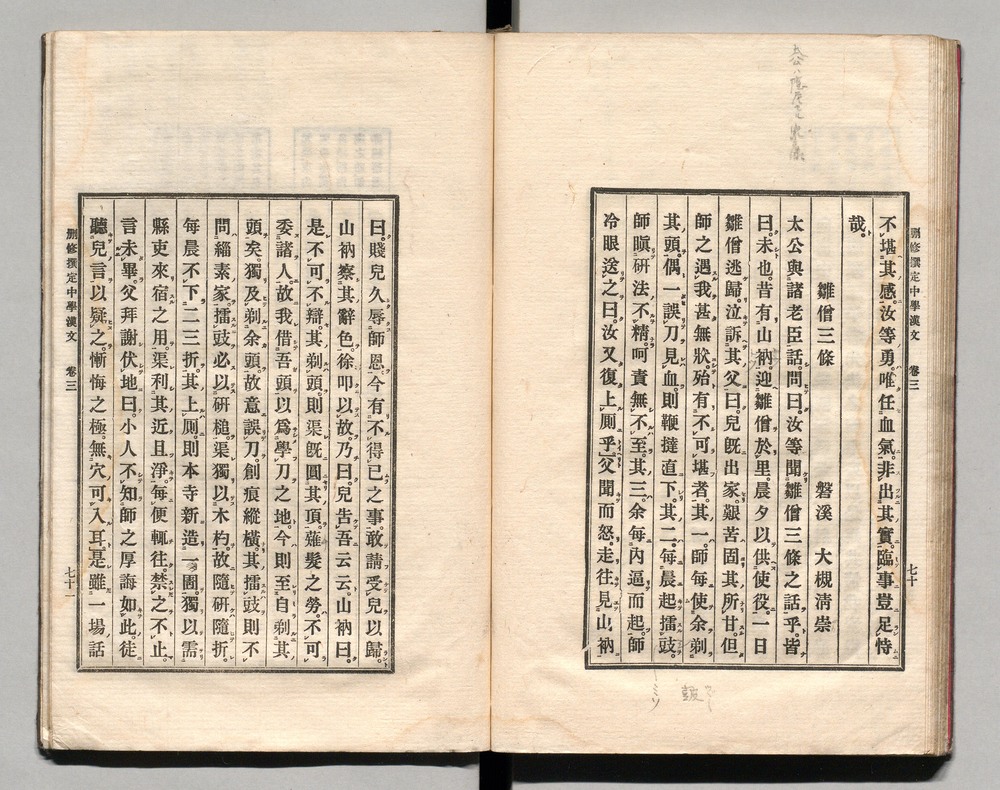 不堪其感。汝等勇。唯任血氣。非出其實。臨事豈足恃
哉。
雛僧三條　磐溪　大槻淸崇
太公與諸老臣話。問曰。汝等聞雛僧三條之話乎。皆
曰。未也。昔有山衲。迎雛僧於里。晨夕以供使役。一日
雛僧逃歸。泣訴其父曰。兒旣出家。艱苦固其所甘。但
師之遇我甚無狀。殆有不可堪者。其一。師每使余剃
其頭。偶一誤刀見血。則鞭撻直下。其二。每晨起擂豉。
師瞋研法不精。呵責無不至。其三。余每內逼而起。師
冷眼送之曰。汝又復上厠乎。父聞而怒。走往見山衲
刪修撰定中學漢文　卷三
七十
曰。賤兒久辱師恩。今有不得已之事。敢請受兒以歸。
山衲察其辭色。徐叩以故。乃曰。兒吿吾云云。山衲曰。
是不可不辯。其剃頭。則渠旣圓其頂。薙髮之勞。不可
委諸人。故我借吾頭。以爲學刀之地。今則至自剃其
頭矣。獨及剃余頭。故意誤刀。創痕縱橫。其擂豉。則不
問緇素家。擂豉必以研槌。渠獨以木杓。故隨研隨折。
每晨不下二三折。其上厠。則本寺新造一圊。獨以需
縣吏來宿之用。渠利其近且淨。每便輒往。禁之不止。
言未畢。父拜謝伏地曰。小人不知師之厚誨如此。徒
聽兒言以疑之。慚悔之極。無穴可入耳。是雖一場話
刪修撰定中學漢文　卷三
七十一